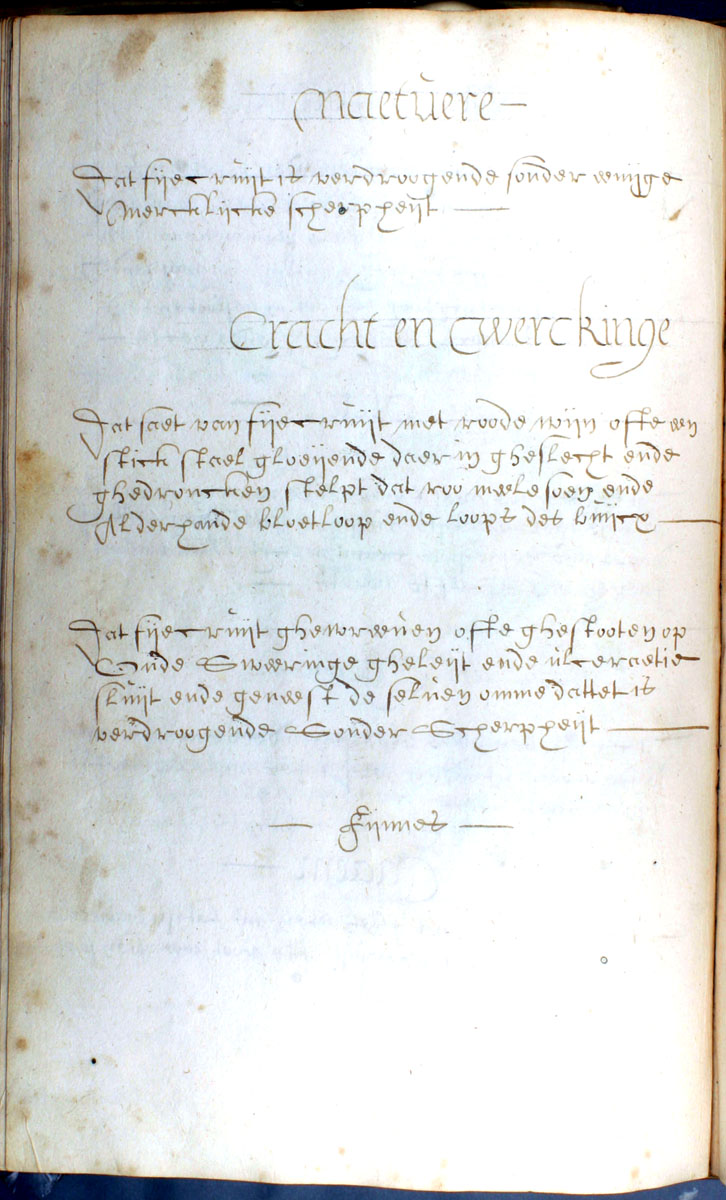 Naetuere
Dat fijecruijt is verdroogende sonder eenijge
Mercklijcke scherpheijt
Cracht en Twerckinge
Dat saet van fijecruijt met roode wijn ofte een
stick stael gloeijende daer in gheslecht ende
ghedroncken stelpt dat roo meelesoen ende
Alderhande bloetloop ende loops des buijcx
Dat fijecruijt ghewreeuen ofte ghestooten op
Oude Sweeringe gheleijt ende ulceraetie
sluijt ende geneest de seluen omme dattet is
verdroogende Sonder Scherpheijt
Fijnnes